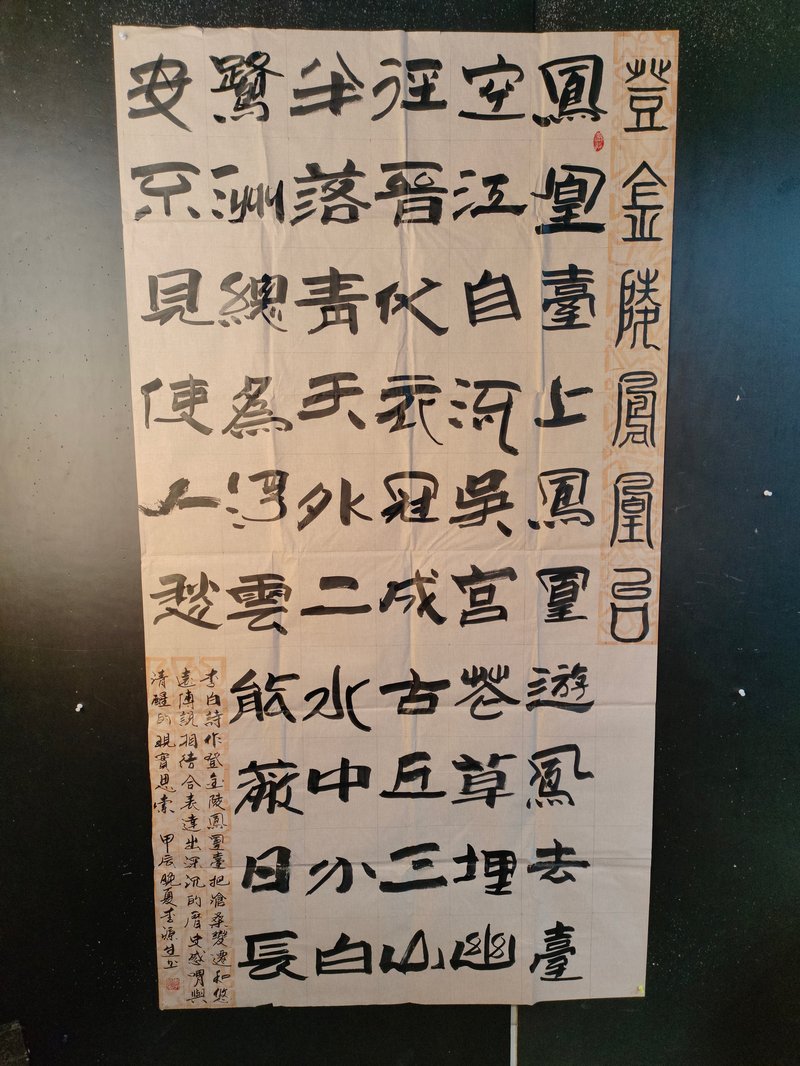 登金陵鳳凰台
鳳凰臺上鳳凰遊鳳去臺
空江自流吳宮花草埋幽
徑晉代衣冠成古丘三山
半落青天外二水中分白
鷺洲總為浮雲能蔽日長
安不見使人愁
李白詩作登金陵鳳凰臺把滄桑變遷和悠
遠傳說相結合表達出深沉的曆史感喟與
清醒的現實思索 甲辰晚夏李源